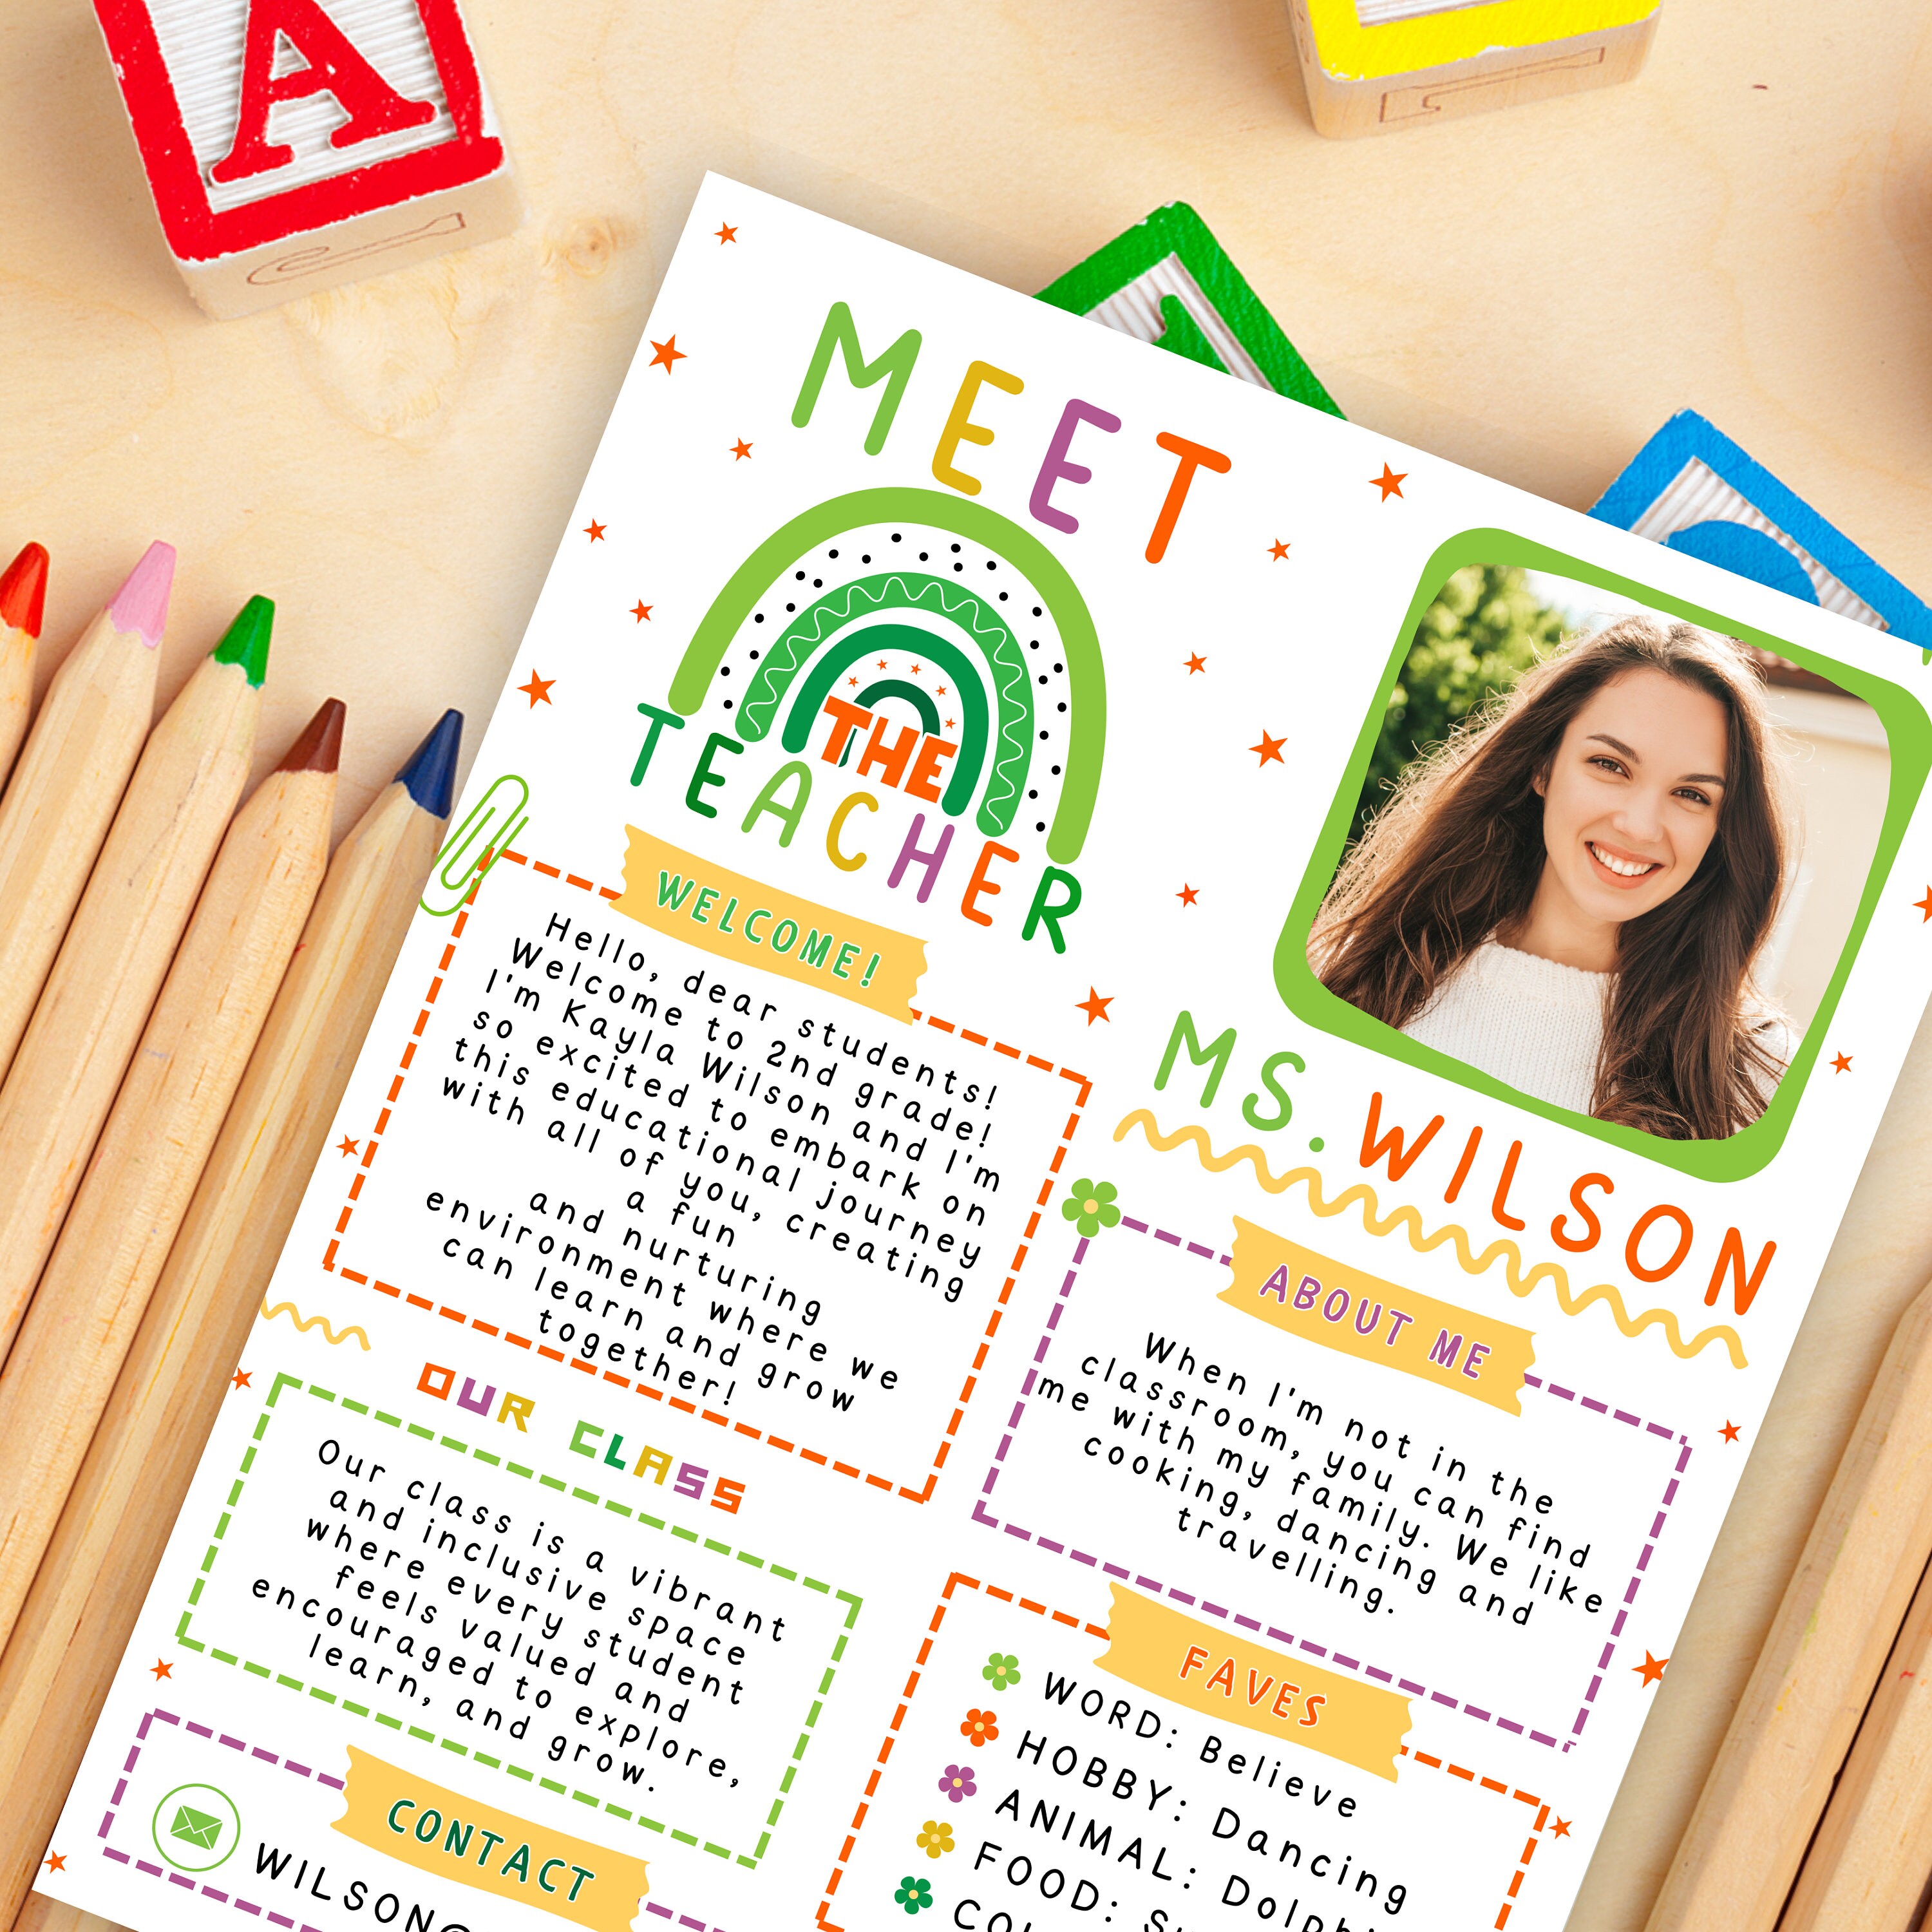 A
MEET
THE
TEACHER
WELCOME!
Hello, dear students!
Welcome to 2nd grade!
I'm Kayla Wilson and I'm
so excited to embark on
this educational journey
with all of you, creating
a fun
and nurturing
environment where we
can learn and grow
together!
MS. WILSON
ABOUT ME
When I'm not in the
classroom, you can find
me with my family. We like
cooking, dancing and
travelling.
OUR CLASS
Our class is a vibrant
and inclusive space
where every student
feels valued and
encouraged to explore,
learn, and grow.
FAVES
WORD: Believe
HOBBY: Dancing
ANIMAL:
FOOD:
CONTACT